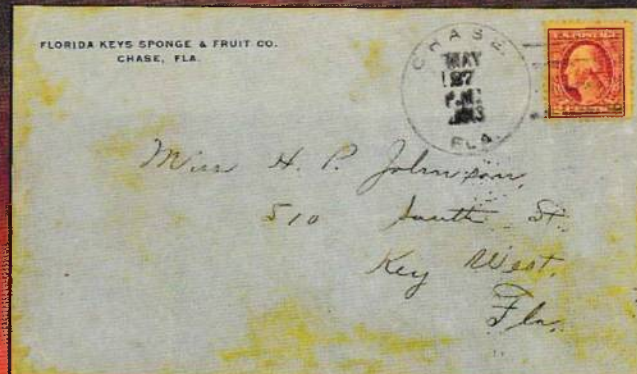 FLORIDA KEYS SPONGE & FRUIT CO.
CHASE, FLA.
CHASE
MAY
27
P.M.
FLA.
U.S. POSTAGE
Miss H. P. Johnson,
510 South St.
Key West,
Fla.